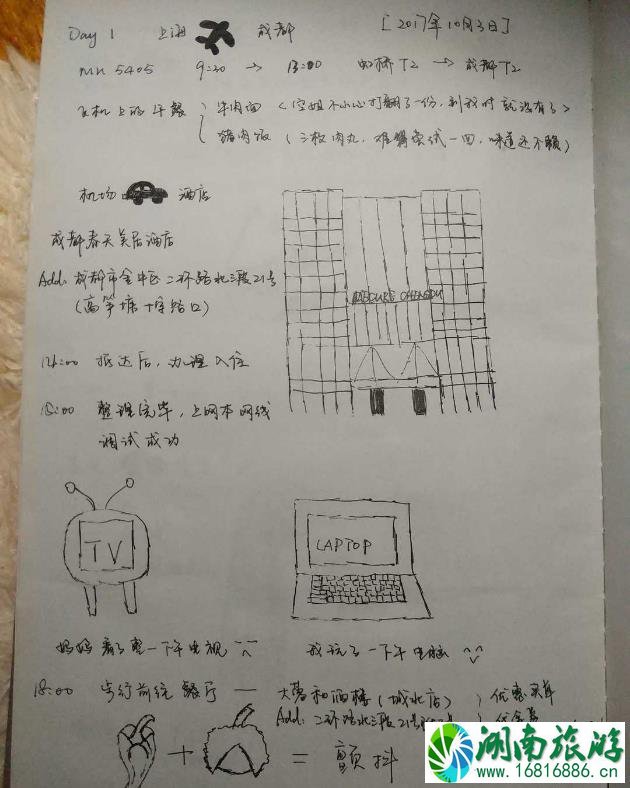 Day 1 上海 成都 [2017年10月3日]
MU 5405 9:20 → 13:00 虹桥T2 → 成都T2
飞机上的午餐 牛肉面 <空姐不小心打翻了一份,到我时就没有了>
猪肉饭 (三枚肉丸,难得尝试一回,味道还不赖)
机场 酒店
成都春天美居酒店
Add: 成都市金牛区二环路北三段21号
(高笋塘十字路口)
MERCURE CHENGDU
14:00 抵达后,办理入住
15:00 整理完毕,上网本网线
调试成功
TV
LAPTOP
妈妈看了整一下午电视
我玩了一下午电脑
18:00 步行前往餐厅 — 大蓉和酒楼(城北店) 优惠买单
Add: 二环路北三段21号
+ = 颤抖
湖南旅游
www.16816886.cn